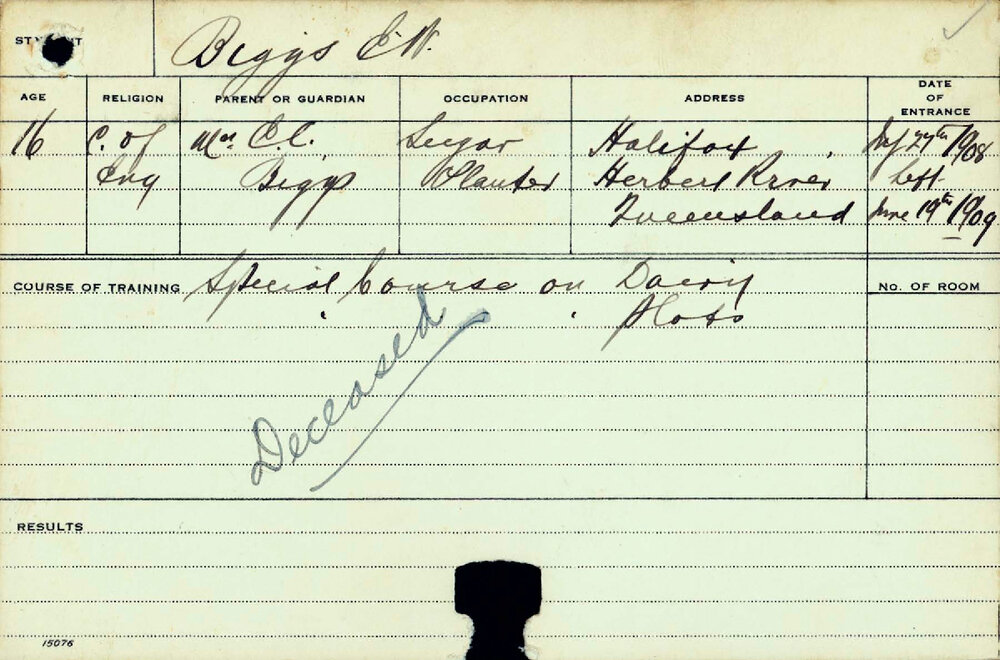 Biggs E.W.
AGE RELIGION PARENT OR GUARDIAN OCCUPATION ADDRESS DATE OF ENTRANCE
16 C. of Mr. E.C. Sugar Halifax, 27th 1908
Eng Biggs Planter Herbert River Left
Queensland June 19th 1909
COURSE OF TRAINING Special Course on Dairy No. OF ROOM
" " Plots
Deceased
RESULTS
15076